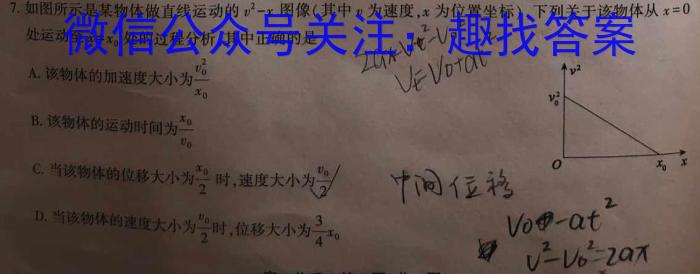 7. 如图所示是某物体做直线运动的 v²-x 图像(其中 v 为速度,x 为位置坐标),下列关于该物体从 x=0
处运动至 x=x₀ 处的过程分析,其中正确的是
微信公众号关注:趣找答案
A. 该物体的加速度大小为 v₀²/x₀
B. 该物体的运动时间为 x₀/v₀
C. 当该物体的位移大小为 x₀/2 时,速度大小为 v₀/2
D. 当该物体的速度大小为 v₀/2 时,位移大小为 3/4 x₀
v²
v₀²
O
x₀
x
中间位移
v²-v₀²=2ax